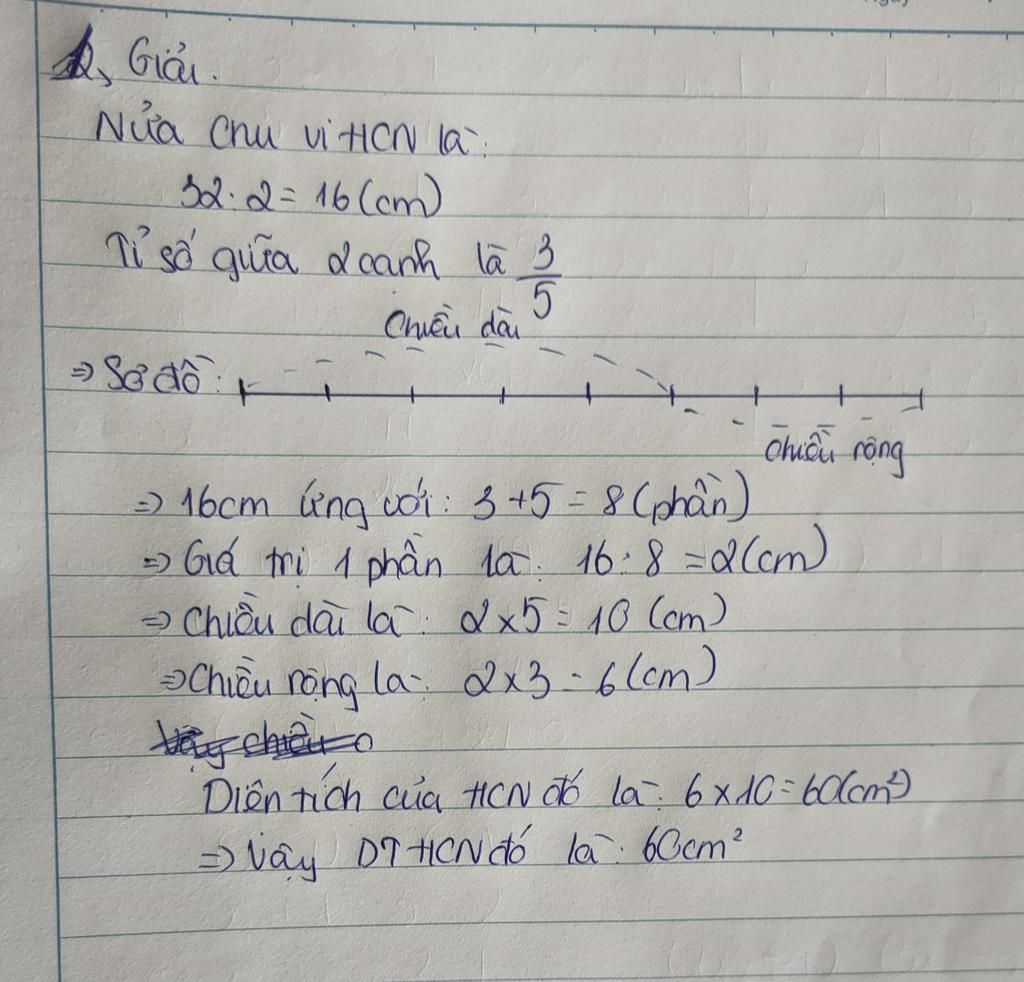 2, Giải.
Nửa chu vi HCN là:
32:2 = 16 (cm)
Tỉ số giữa 2 cạnh là 3/5
Chiều dài
⇒ Sơ đồ:
Chiều rộng
⇒ 16cm ứng với: 3 + 5 = 8 (phần)
⇒ Giá trị 1 phần là: 16 : 8 = 2 (cm)
⇒ Chiều dài là: 2 x 5 = 10 (cm)
⇒ Chiều rộng là: 2 x 3 = 6 (cm)
Diện tích của HCN đó là: 6 x 10 = 60 (cm²)
⇒ Vậy DT HCN đó là: 60cm²